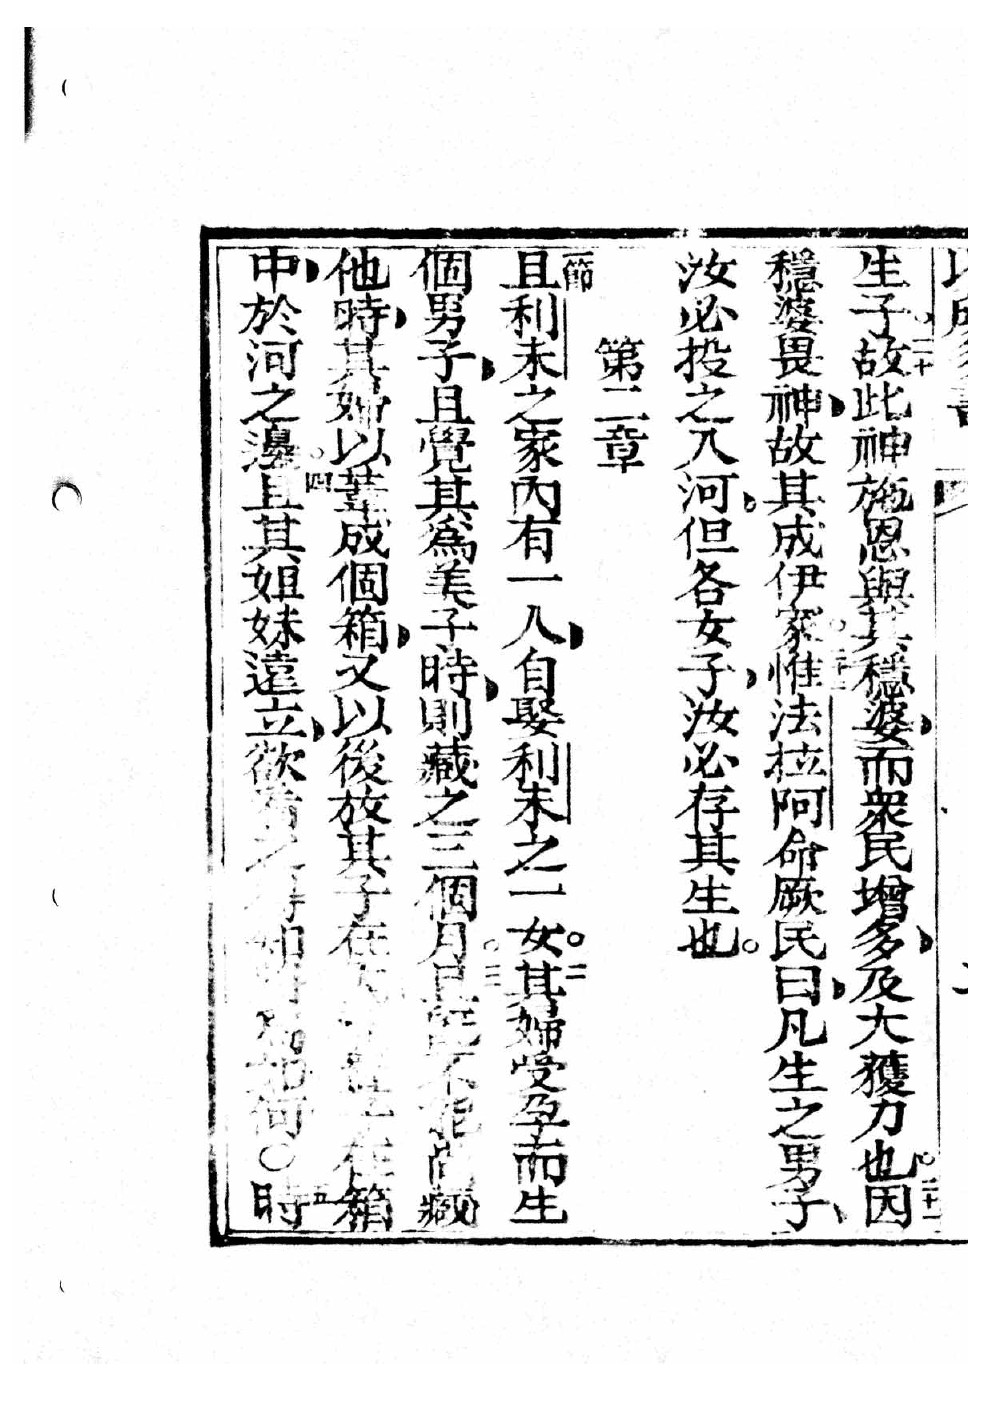 生子故二十此神施恩與其穩婆而衆民增多及大獲力也二十一因
穩婆畏神故其成伊家二十二惟法拉阿命厥民曰凡生之男子
汝必投之入河但各女子汝必存其生也
第二章
一節且利未之家內有一人自娶利未之一女二其婦受孕而生
個男子且覺其爲美子時則藏之三個月三已不能尚藏
他時其婦以葦成個箱又以後放其子在箱
中於河之邊四且其姐妹遠立欲何〇五時